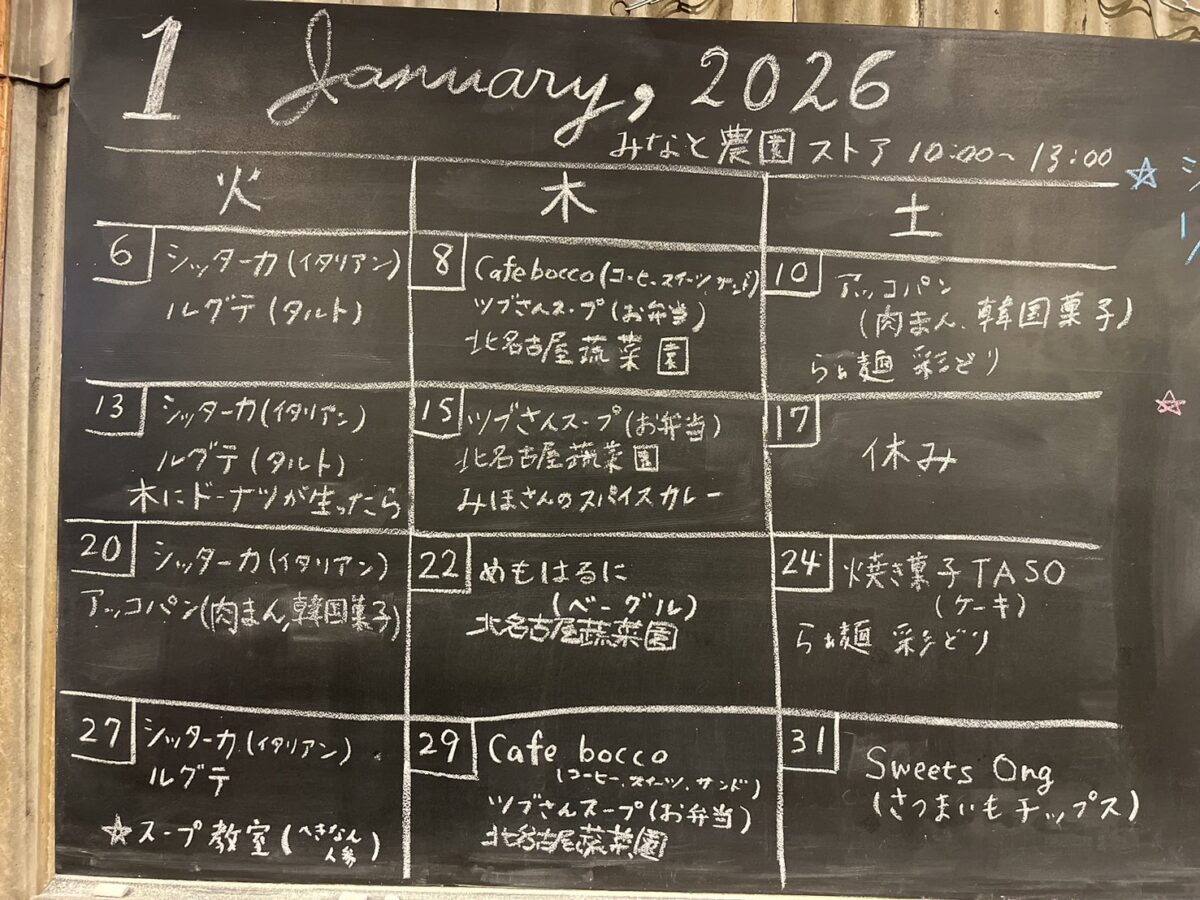 1 January, 2026
みなと農園ストア 10:00〜13:00
火 木 土
6 シッターカ(イタリアン)
ルグテ(タルト)
8 Cafe bocco(コーヒー、スイーツ サンド)
ツブさんスープ(お弁当)
北名古屋蔬菜園
10 アッコパン
(肉まん、韓国菓子)
らぁ麺 彩どり
13 シッターカ(イタリアン)
ルグテ(タルト)
木にドーナツが生ったら
15 ツブさんスープ(お弁当)
北名古屋蔬菜園
みほさんのスパイスカレー
17 休み
20 シッターカ(イタリアン)
アッコパン(肉まん,韓国菓子)
22 めもはるに
(ベーグル)
北名古屋蔬菜園
24 焼き菓子TASO
(ケーキ)
らぁ麺 彩どり
27 シッターカ(イタリアン)
ルグテ
☆スープ教室(へきなん
人参)
29 Cafe bocco
(コーヒー、スイーツ、サンド)
ツブさんスープ(お弁当)
北名古屋蔬菜園
31 Sweets Ong
(さつまいもチップス)
☆
☆